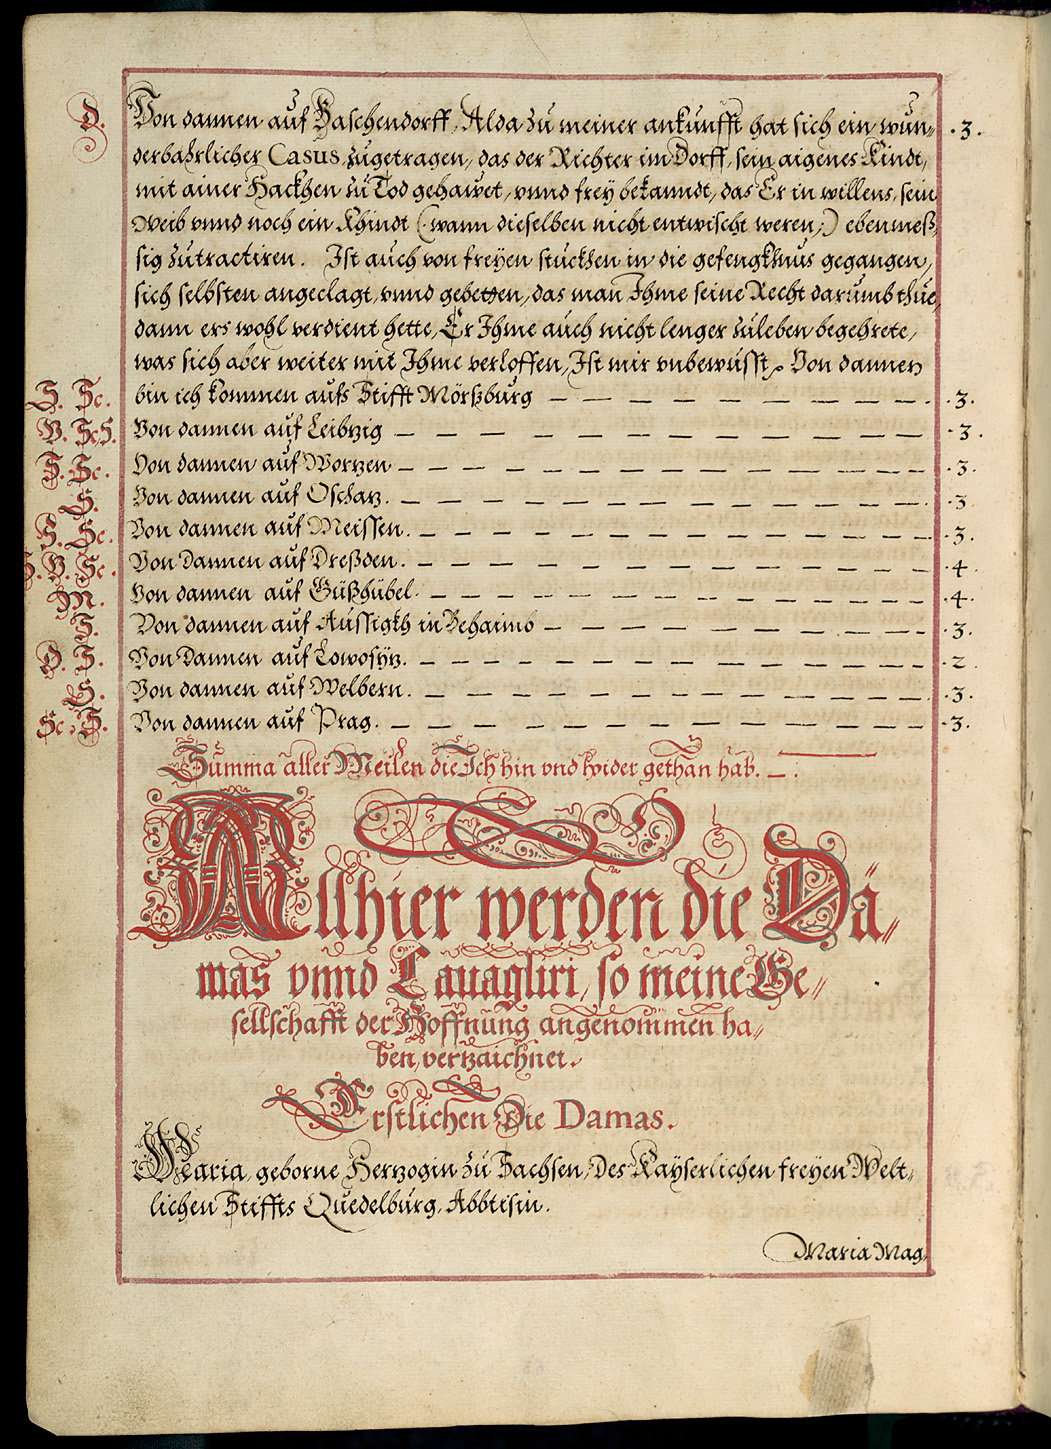 D. Von dannen auf Haschendorff, Alda zu meiner ankunfft hat sich ein wun⸗ .3.
derbahrlicher Casus, zugetragen, das der Richter im Dorff, sein aigenes Kindt,
mit ainer Hackhen zu Tod gehawet, vnnd frey bekanndt, das Er in willens, sein
Weib vnnd noch ein Khindt (: wann dieselben nicht entwischt weren,:) ebenmeß⸗
sig zutractiren. Ist auch von freyen stuckhen in die gefengkhnus gegangen,
sich selbsten angeclagt, vnnd gebetten, das man Ihme seine Recht darumb thue,
dann ers wohl verdient hette, Er Ihme auch nicht lenger zuleben begehrete,
was sich aber weiter mit Ihme verloffen, Ist mir vnbewusst, Von dannen
S. Sc. bin ich kommen aufs Stifft Mörßburg — — — — — — — — — — .3.
V. Sc. S. Von dannen auf Leibtzig — — — — — — — — — — .3.
S. Sc. Von dannen auf Wortzen — — — — — — — — — — .3.
S. Von dannen auf Oschatz. — — — — — — — — — — .3
S. Sc. Von dannen auf Meissen. — — — — — — — — — — .3.
S. V. Sc. Von dannen auf Dreßden. — — — — — — — — — — .4.
M. Von dannen auf Güßhübel. — — — — — — — — — — .4.
S. Von dannen auf Aussigkh in Behaimb — — — — — — — — .3.
D. S. Von dannen auf Lowositz. — — — — — — — — — — .2.
S. Von dannen auf Welbern. — — — — — — — — — — .3.
Sc. S. Von dannen auf Prag. — — — — — — — — — — .3.
Summa aller Meilen die Ich hin vnd wider gethan hab. — .
Allhier werden die Da⸗
mas vnnd Cauagliri, so meine Ge⸗
sellschafft der Hoffnung angenommen ha⸗
ben, vertzaichnet.
Erstlichen Die Damas.
Maria, geborne Hertzogin zu Sachsen, Des Kayserlichen freyen Welt⸗
lichen Stiffts Quedelburg, Abbtisin.
Maria Mag⸗